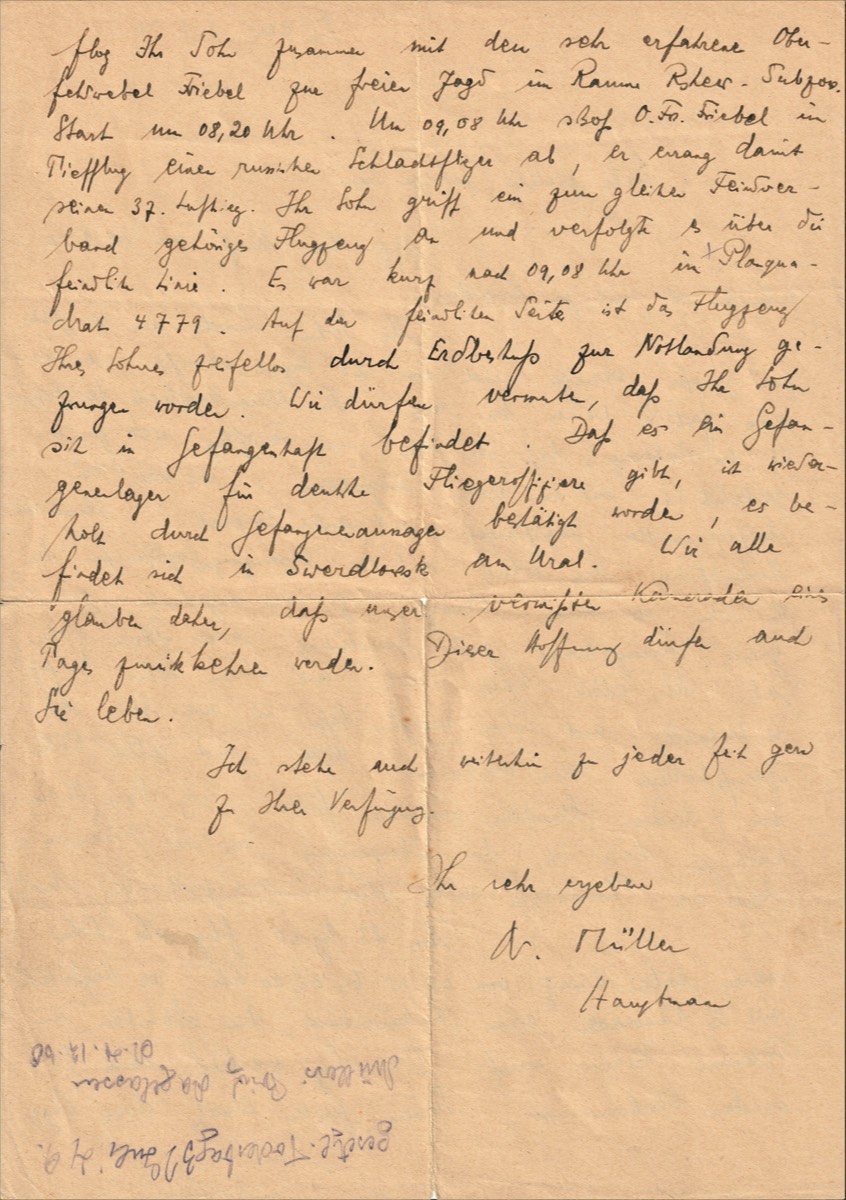 flog Ihr Sohn zusammen mit den sehr erfahrene Ober-
feldwebel Friebel zur freien Jagd im Raume Rshew - Subzow.
Start um 08,20 Uhr. Um 09,08 Uhr schoß O.Fw. Friebel im
Tiefflug einen russischen Schlachtflieger ab, er errang damit
seinen 37. Luftsieg. Ihr Sohn griff ein zum gleichen Feindver-
band gehöriges Flugzeug an und verfolgte es über die
feindliche Linie. Es war kurz nach 09,08 Uhr im Planqua-
drat 4779. Auf der feindlichen Seite ist das Flugzeug
Ihres Sohnes zweifellos durch Erdbeschuß zur Notlandung ge-
zwungen worden. Wir dürfen vermuten, daß Ihr Sohn
sich in Gefangenschaft befindet. Daß es ein Gefan-
genenlager für deutsche Fliegeroffiziere gibt, ist wieder-
holt durch Gefangenenaussagen bestätigt worden, es be-
findet sich in Swerdlowsk am Ural. Wir alle
glauben daher, daß unser vermißten Kameraden eines
Tages zurückkehren werden. Dieser Hoffnung dürfen auch
Sie leben.
Ich stehe auch weiterhin zu jeder Zeit gern
zu Ihrer Verfügung.
Ihr sehr ergebene
Müller
Hauptmann
gesetzl.
Müllers Brief dagelassen